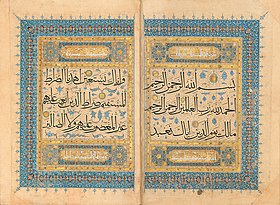 بسم الله الرحمن الرحيم
الحمد لله رب العلمين الرحمن الرحيم
مالك يوم الدين اياك نعبد
واياك نستعين اهدنا الصراط
المستقيم صراط الذين انعمت عليهم
غير المغضوب عليهم ولا الضالين